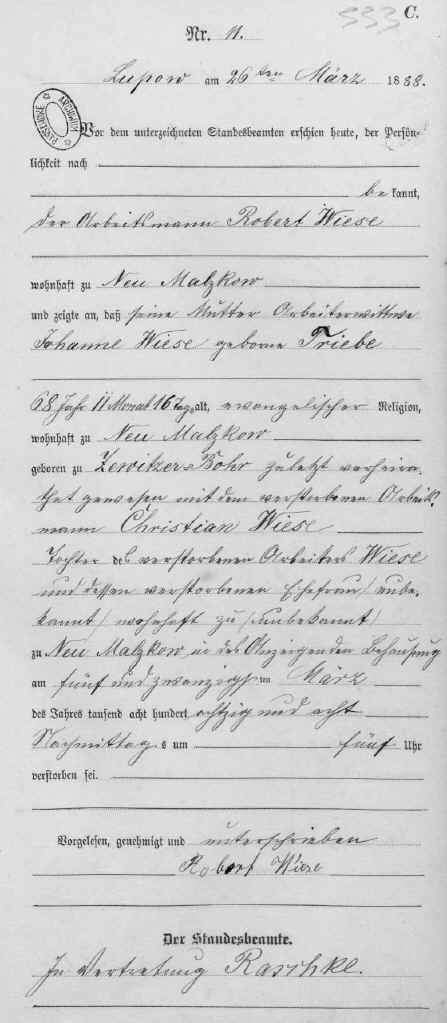 333 C.
Nr. 11.
Lupow am 26 ten März 1888.
ARCHIWUM PAŃSTWOWE
Vor dem unterzeichneten Standesbeamten erschien heute, der Persön-
lichkeit nach
be kannt,
der Arbeitsmann Robert Wiese
wohnhaft zu Neu Malzkow
und zeigte an, daß seine Mutter Arbeiterwittwe
Johanne Wiese geborne Triebe
68 Jahr 11 Monat 16 Tage alt, evangelischer Religion,
wohnhaft zu Neu Malzkow
geboren zu Zewitzer Bohr zuletzt verheira-
thet gewesen mit dem verstorbenen Arbeits-
mann Christian Wiese
Tochter des verstorbenen Arbeiters Wiese
und dessen verstorbenen Ehefrau (unbe-
kannt) wohnhaft zu (unbekannt)
zu Neu Malzkow in des Anzeigenden Behausung
am fünf und zwanzigsten März
des Jahres tausend acht hundert achtzig und acht
Nachmittag s um fünf Uhr
verstorben sei.
Vorgelesen, genehmigt und unterschrieben
Robert Wiese
Der Standesbeamte.
In Vertretung Raschke.